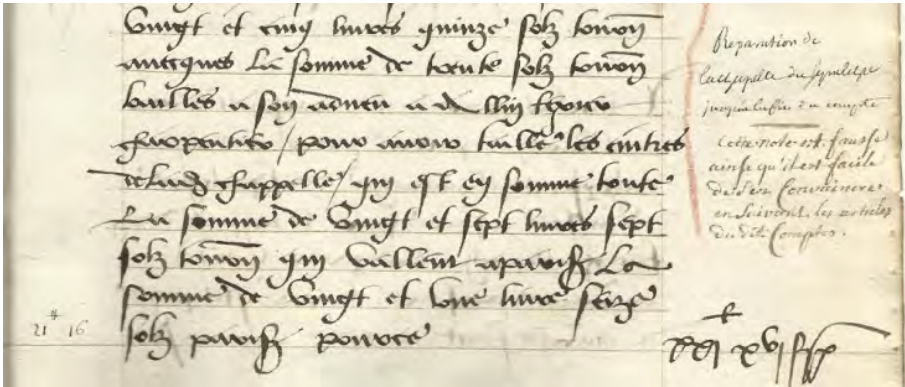 vingt et cinq livres quinze solz tourn
avecques la somme de trente solz tourn
bailles a son
charpentier / pour avoir taille les cintres
de lad chappelle / qui est en somme toute
La somme de vingt et sept livres sept
solz tourn qui vallent a parisis La
somme de vingt et une livre seize
solz parisis pource
21 16
xxi xvi s p
Reparation de
la chapelle du sepulchre
jusqu'a la fin du compte
Cette note est fausse
ainsi qu'il est facile
de s'en Convaincre
en Suivant les articles
du dit Comptes.